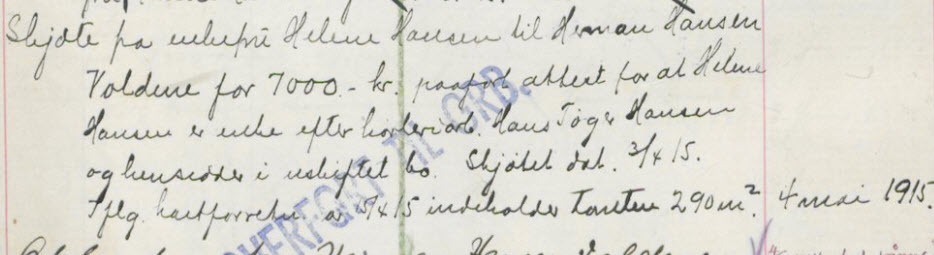 Skjøte fra enkefru Helene Hansen til Herman Hansen
Voldene for 7000.- kr. paaført attest for at Helene
Hansen er enke efter Hans Tøger Hansen
og hensidder i uskiftet bo. Skjøtet dat. 3/4 15.
Iflg. kartforretn. av 15 indeholder tomten 290 m². 4 mai 1915.
OVERFØRT TIL GRB.